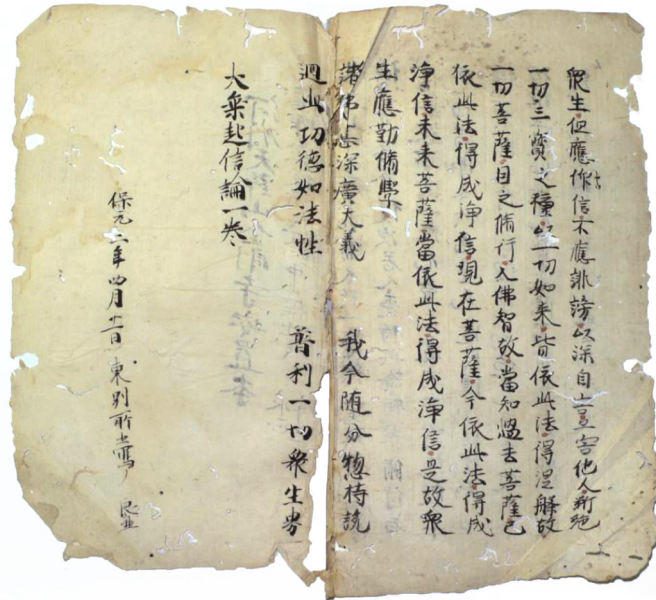 衆生但應仰信不應誹謗以深自害他人断絶
一切三寳之種以一切如来皆依此法得涅槃故
一切菩薩因之脩行入佛智故當知過去菩薩已
依此法得成浄信現在菩薩今依此法得成
浄信未来菩薩當依此法得成浄信是故衆
生應勤脩學
諸佛甚深廣大義 我今随分惣持説
迴此功德如法性 普利一切衆生界
大乗起信論一巻
保元二年四月廿一日東別所書寫